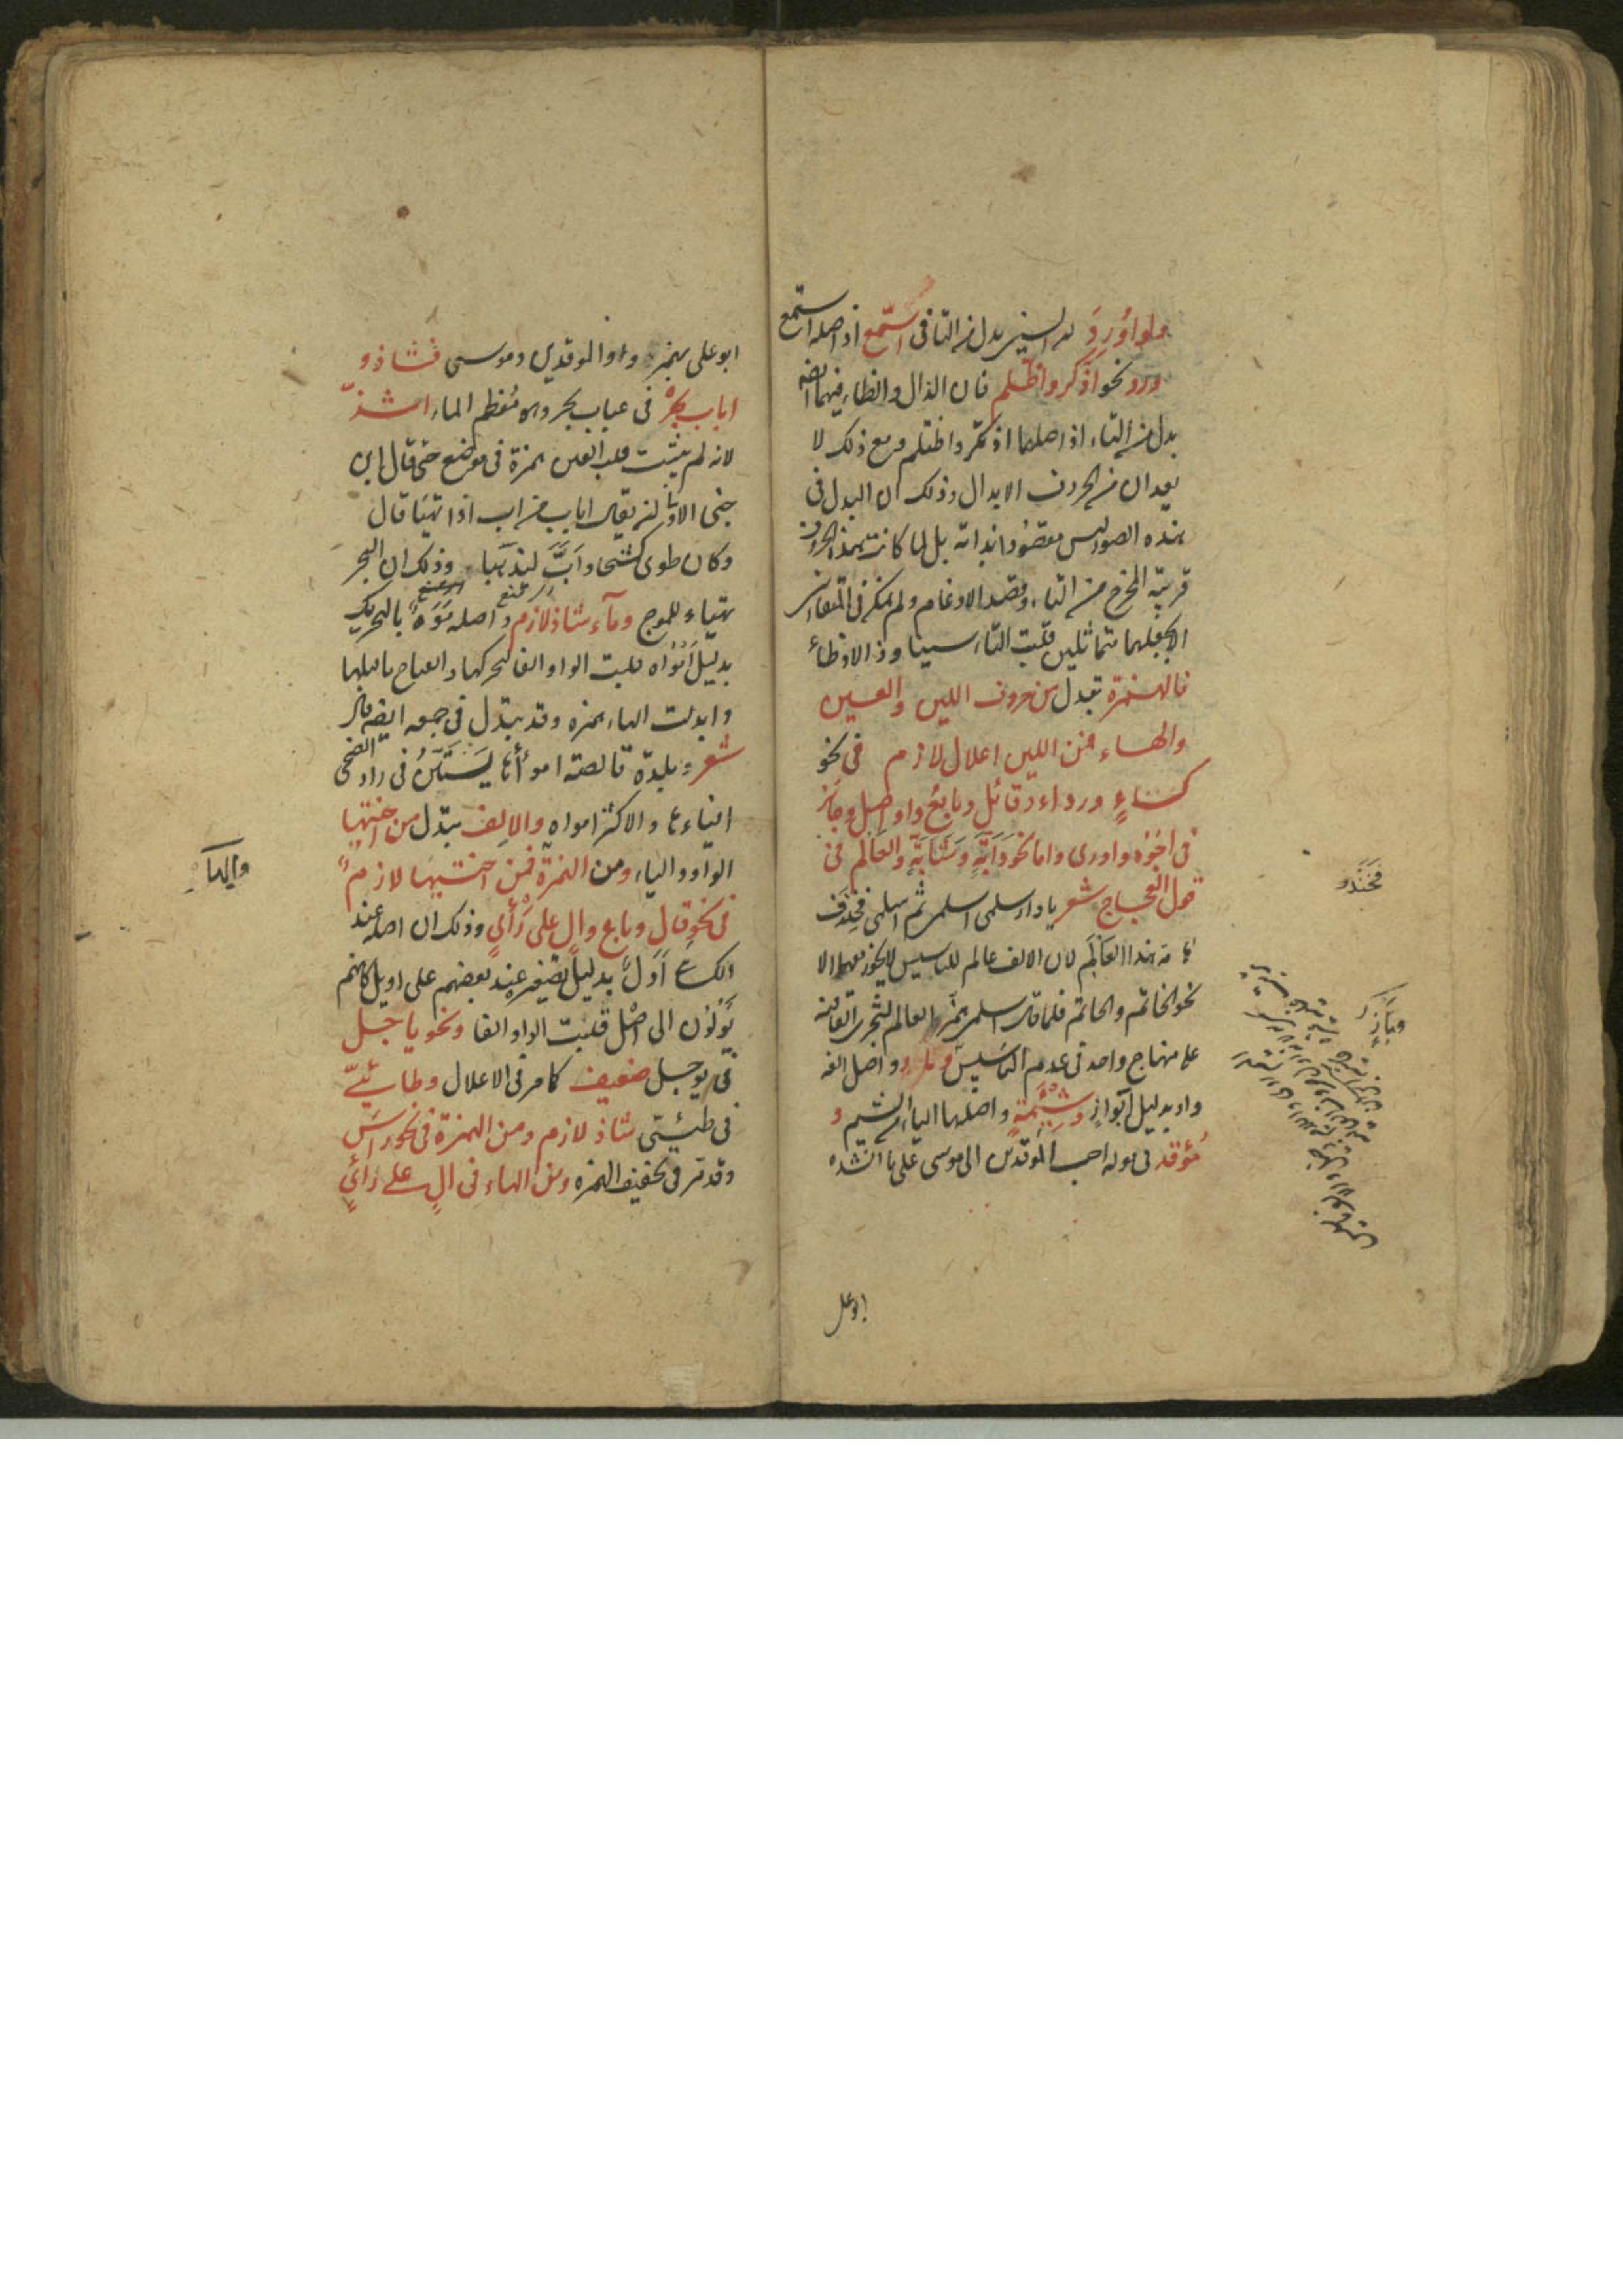 ولو اورد له السين بدل من التا فى استمع اذ اصله استمع
ورد نحو اذكر واظلم فان الذال والظاء فيهما ايضا
بدل من التاء اذ اصلهما اذتكر واظتلم ومع ذلك لا
يعدان من الحروف الابدال وذلك ان البدل فى
هذه الصور ليس مقصودا بذاته بل لما كانت هذه الحروف
قريبة المخرج من التاء وقصد الادغام ولم يمكن فى المتقاربين
الا بجعلهما متماثلين قلبت التاء سينا وذالا وظاء
فالهمزة تبدل من حروف اللين والعين
والهاء فمن اللين اعلال لازم فى نحو
كساء ورداء وقائل وبايع واواصل وجائز
فى اجوه واورى واما نحو دأبة وشأبة والعألم فى
قول العجاج شعر يا دار سلمى اسلمى ثم اسلمى فخندف
هامة هذا العألم لان الالف عالم للتاسيس لا يجوز معها الا
نحو الخاتم والحاتم فلما قال اسلمى همز العالم لتجرى القافية
على منهاج واحد فى عدم التاسيس وبأز واصل الفه
واو بدليل ابواز وشئمة واصلها الياء الشيم و
مؤقد فى قوله احب الموقدين الى موسى على ما انشده
فخندف
وبأز
ابو على
ابو على بهمز واو الموقدين وموسى فشاذ و
اباب بحر فى عباب بحر وهو معظم الماء اشذ
لانه لم يثبت قلب العين همزة فى موضع حتى قال ابن
جنى الاولى ان يقال اباب من اب اذا تهيأ قال
وكان طوى كشحا واب ليذهبا وذلك ان البحر
يتهياء للموج وماء شاذ لازم واصله موه بالتحريك
بدليل امواه قلبت الواو الفا لتحركها وانفتاح ما قبلها
وابدلت الهاء همزة وقد يبدل فى جمعه ايضا قال
شعر وبلدة قالصة امواءها يستن فى راد الضحى
افياءها والاكثر امواه والالف تبدل من اختيها
الواو والياء ومن الهمزة فمن اختيها لازم
فى نحو قال وباع وال على رأى وذلك ان اصله عند
الكسائى اول بدليل تصغيره عند بعضهم على اويل كانهم
يؤلون الى اصل قلبت الواو الفا ونحو ياجل
فى يوجل ضعيف كما مر فى الاعلال وطائى
فى طيئى شاذ لازم ومن الهمزة فى نحو راس
وقد مر فى تخفيف الهمزة ومن الهاء فى ال على رأى
والهاء